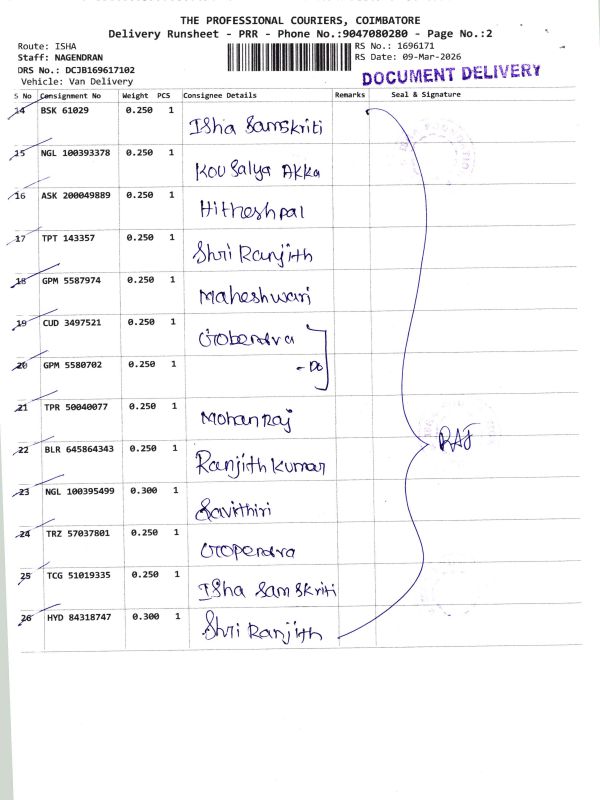 THE PROFESSIONAL COURIERS, COIMBATORE
Delivery Runsheet - PRR - Phone No.:9047080280 - Page No.:2
Route: ISHA
RS No.: 1696171
Staff: NAGENDRAN
RS Date: 09-Mar-2026
DRS No.: DCJB169617102
DOCUMENT DELIVERY
Vehicle: Van Delivery
S No Consignment No Weight PCS Consignee Details Remarks Seal & Signature
14 BSK 61029 0.250 1 Isha Samskriti
15 NGL 100393378 0.250 1 Kousalya Akka
16 ASK 200049889 0.250 1 Hitheshpal
17 TPT 143357 0.250 1 Shri Ranjith
18 GPM 5587974 0.250 1 Maheshwari
19 CUD 3497521 0.250 1 Gobendra
20 GPM 5580702 0.250 1 - Do
21 TPR 50040077 0.250 1 Mohanraj
22 BLR 645864343 0.250 1 Ranjith Kumar
23 NGL 100395499 0.300 1 Savithiri
24 TRZ 57037801 0.250 1 Gopendra
25 TCG 51019335 0.250 1 Isha Samskriti
26 HYD 84318747 0.300 1 Shri Ranjith
RAJ